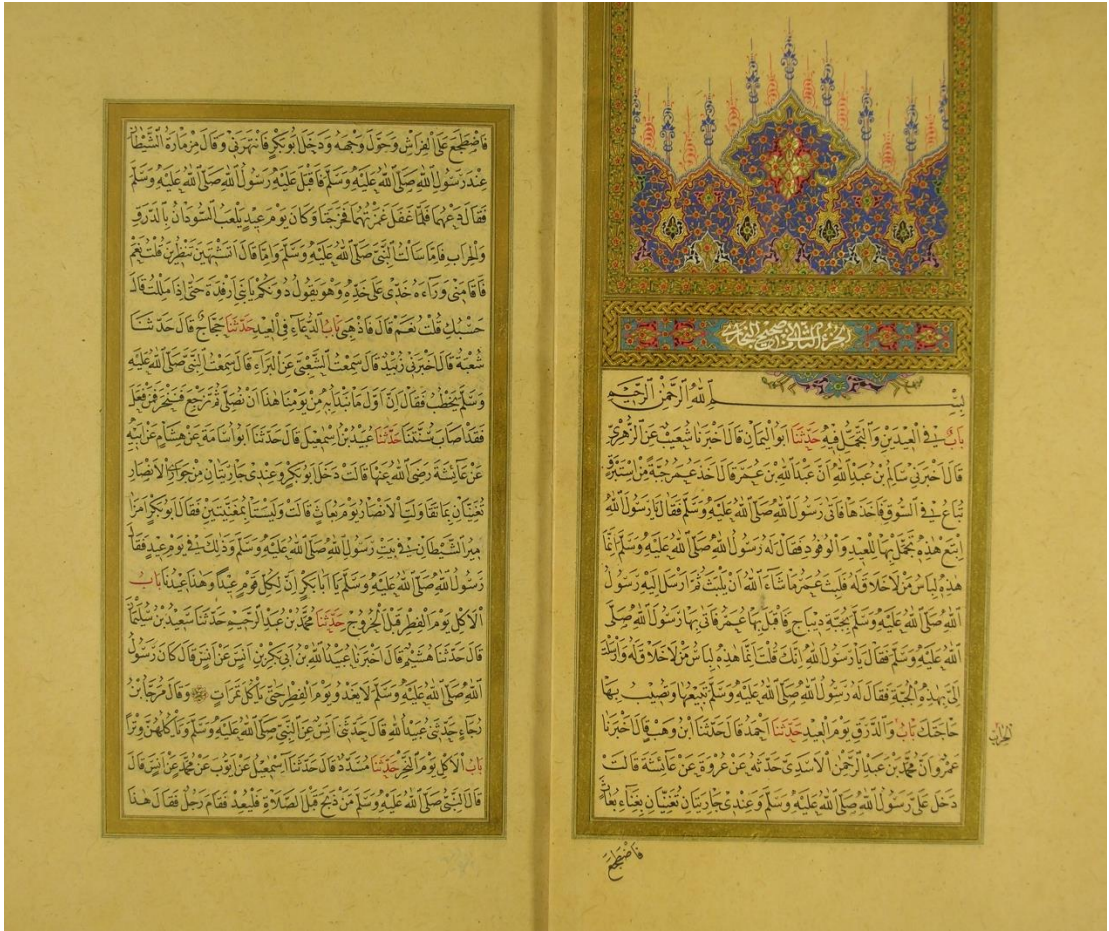 الجزء الثاني من صحيح البخاري
بِسْمِ اللّٰهِ الرَّحْمٰنِ الرَّحِيْمِ
بَابٌ فِي الْعِيدَيْنِ وَالتَّجَمُّلِ فِيهِ حَدَّثَنَا اَبُو الْيَمَانِ قَالَ اَخْبَرَنَا شُعَيْبٌ عَنِ الزُّهْرِيِّ
قَالَ اَخْبَرَنِي سَالِمُ بْنُ عَبْدِ اللّٰهِ اَنَّ عَبْدَ اللّٰهِ بْنَ عُمَرَ قَالَ اَخَذَ عُمَرُ جُبَّةً مِنْ اِسْتَبْرَقٍ
تُبَاعُ فِي السُّوقِ فَاَخَذَهَا فَاَتٰى رَسُولَ اللّٰهِ صَلَّى اللّٰهُ عَلَيْهِ وَسَلَّمَ فَقَالَ يَا رَسُولَ اللّٰهِ
اِبْتَعْ هٰذِهِ تَجَمَّلْ بِهَا لِلْعِيدِ وَالْوُفُودِ فَقَالَ لَهُ رَسُولُ اللّٰهِ صَلَّى اللّٰهُ عَلَيْهِ وَسَلَّمَ اِنَّمَا
هٰذِهِ لِبَاسُ مَنْ لَا خَلَاقَ لَهُ فَلَبِثَ عُمَرُ مَا شَاءَ اللّٰهُ اَنْ يَلْبَثَ ثُمَّ اَرْسَلَ اِلَيْهِ رَسُولُ
اللّٰهِ صَلَّى اللّٰهُ عَلَيْهِ وَسَلَّمَ بِجُبَّةِ دِيبَاجٍ فَاَقْبَلَ بِهَا عُمَرُ فَاَتٰى بِهَا رَسُولَ اللّٰهِ صَلَّى
اللّٰهُ عَلَيْهِ وَسَلَّمَ فَقَالَ يَا رَسُولَ اللّٰهِ اِنَّكَ قُلْتَ اِنَّمَا هٰذِهِ لِبَاسُ مَنْ لَا خَلَاقَ لَهُ وَاَرْسَلْتَ
اِلَيَّ بِهٰذِهِ الْجُبَّةِ فَقَالَ لَهُ رَسُولُ اللّٰهِ صَلَّى اللّٰهُ عَلَيْهِ وَسَلَّمَ تَبِيعُهَا وَتُصِيبُ بِهَا
حَاجَتَكَ بَابُ وَالدَّرَقِ يَوْمَ الْعِيدِ حَدَّثَنَا اَحْمَدُ قَالَ حَدَّثَنَا ابْنُ وَهْبٍ قَالَ اَخْبَرَنَا
الحراب
عَمْرٌو اَنَّ مُحَمَّدَ بْنَ عَبْدِ الرَّحْمٰنِ الْاَسَدِيَّ حَدَّثَهُ عَنْ عُرْوَةَ عَنْ عَائِشَةَ قَالَتْ
دَخَلَ عَلَيَّ رَسُولُ اللّٰهِ صَلَّى اللّٰهُ عَلَيْهِ وَسَلَّمَ وَعِنْدِي جَارِيَتَانِ تُغَنِّيَانِ بِغِنَاءِ بُعَاثَ
فَاضْطَجَعَ
فَاضْطَجَعَ عَلَى الْفِرَاشِ وَحَوَّلَ وَجْهَهُ وَدَخَلَ اَبُو بَكْرٍ فَانْتَهَرَنِي وَقَالَ مِزْمَارَةُ الشَّيْطَانِ
عِنْدَ رَسُولِ اللّٰهِ صَلَّى اللّٰهُ عَلَيْهِ وَسَلَّمَ فَاَقْبَلَ عَلَيْهِ رَسُولُ اللّٰهِ صَلَّى اللّٰهُ عَلَيْهِ وَسَلَّمَ
فَقَالَ دَعْهُمَا فَلَمَّا غَفَلَ غَمَزْتُهُمَا فَخَرَجَتَا وَكَانَ يَوْمَ عِيدٍ يَلْعَبُ السُّودَانُ بِالدَّرَقِ
وَالْحِرَابِ فَاِمَّا سَاَلْتُ النَّبِيَّ صَلَّى اللّٰهُ عَلَيْهِ وَسَلَّمَ وَاِمَّا قَالَ اَتَشْتَهِينَ تَنْظُرِينَ قُلْتُ نَعَمْ
فَاَقَامَنِي وَرَاءَهُ خَدِّي عَلَى خَدِّهِ وَهُوَ يَقُولُ دُونَكُمْ يَا بَنِي اَرْفِدَةَ حَتّٰى اِذَا مَلِلْتُ قَالَ
حَسْبُكِ قُلْتُ نَعَمْ قَالَ فَاذْهَبِي بَابُ الدُّعَاءِ فِي الْعِيدِ حَدَّثَنَا حَجَّاجٌ قَالَ حَدَّثَنَا
شُعْبَةُ قَالَ اَخْبَرَنِي زُبَيْدٌ قَالَ سَمِعْتُ الشَّعْبِيَّ عَنِ الْبَرَاءِ قَالَ سَمِعْتُ النَّبِيَّ صَلَّى اللّٰهُ عَلَيْهِ
وَسَلَّمَ يَخْطُبُ فَقَالَ اِنَّ اَوَّلَ مَا نَبْدَاُ بِهِ مِنْ يَوْمِنَا هٰذَا اَنْ نُصَلِّيَ ثُمَّ نَرْجِعَ فَنَنْحَرَ فَمَنْ فَعَلَ
فَقَدْ اَصَابَ سُنَّتَنَا حَدَّثَنَا عُبَيْدُ بْنُ اِسْمٰعِيلَ قَالَ حَدَّثَنَا اَبُو اُسَامَةَ عَنْ هِشَامٍ عَنْ اَبِيهِ
عَنْ عَائِشَةَ رَضِيَ اللّٰهُ عَنْهَا قَالَتْ دَخَلَ اَبُو بَكْرٍ وَعِنْدِي جَارِيَتَانِ مِنْ جَوَارِي الْاَنْصَارِ
تُغَنِّيَانِ بِمَا تَقَاوَلَتِ الْاَنْصَارُ يَوْمَ بُعَاثٍ قَالَتْ وَلَيْسَتَا بِمُغَنِّيَتَيْنِ فَقَالَ اَبُو بَكْرٍ اَمَزَا
مِيرُ الشَّيْطَانِ فِي بَيْتِ رَسُولِ اللّٰهِ صَلَّى اللّٰهُ عَلَيْهِ وَسَلَّمَ وَذٰلِكَ فِي يَوْمِ عِيدٍ فَقَالَ
رَسُولُ اللّٰهِ صَلَّى اللّٰهُ عَلَيْهِ وَسَلَّمَ يَا اَبَا بَكْرٍ اِنَّ لِكُلِّ قَوْمٍ عِيدًا وَهٰذَا عِيدُنَا بَابُ
الْاَكْلِ يَوْمَ الْفِطْرِ قَبْلَ الْخُرُوجِ حَدَّثَنَا مُحَمَّدُ بْنُ عَبْدِ الرَّحِيمِ حَدَّثَنَا سَعِيدُ بْنُ سُلَيْمَانَ
قَالَ حَدَّثَنَا هُشَيْمٌ قَالَ اَخْبَرَنَا عُبَيْدُ اللّٰهِ بْنُ اَبِي بَكْرِ بْنِ اَنَسٍ عَنْ اَنَسٍ قَالَ كَانَ رَسُولُ
اللّٰهِ صَلَّى اللّٰهُ عَلَيْهِ وَسَلَّمَ لَا يَغْدُو يَوْمَ الْفِطْرِ حَتّٰى يَاْكُلَ تَمَرَاتٍ وَقَالَ مُرَجَّا بْنُ
رَجَاءٍ حَدَّثَنِي عُبَيْدُ اللّٰهِ قَالَ حَدَّثَنِي اَنَسٌ عَنِ النَّبِيِّ صَلَّى اللّٰهُ عَلَيْهِ وَسَلَّمَ وَيَاْكُلُهُنَّ وِتْرًا
بَابُ الْاَكْلِ يَوْمَ النَّحْرِ حَدَّثَنَا مُسَدَّدٌ قَالَ حَدَّثَنَا اِسْمٰعِيلُ عَنْ اَيُّوبَ عَنْ مُحَمَّدٍ عَنْ اَنَسٍ قَالَ
قَالَ النَّبِيُّ صَلَّى اللّٰهُ عَلَيْهِ وَسَلَّمَ مَنْ ذَبَحَ قَبْلَ الصَّلَاةِ فَلْيُعِدْ فَقَامَ رَجُلٌ فَقَالَ هٰذَا